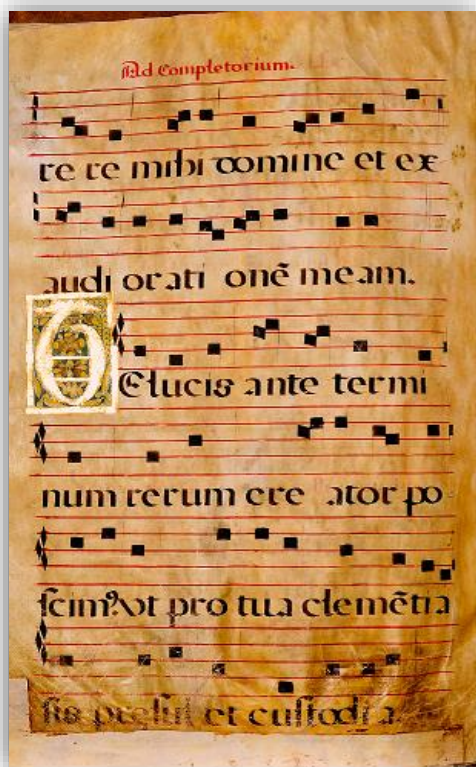 Ad Completorium.
re re mihi domine et ex
audi orati onē meam.
TE lucis ante termi
num rerum cre ator po
scimꝰ Vt pro tua clemētia
sis presul et custodi a.